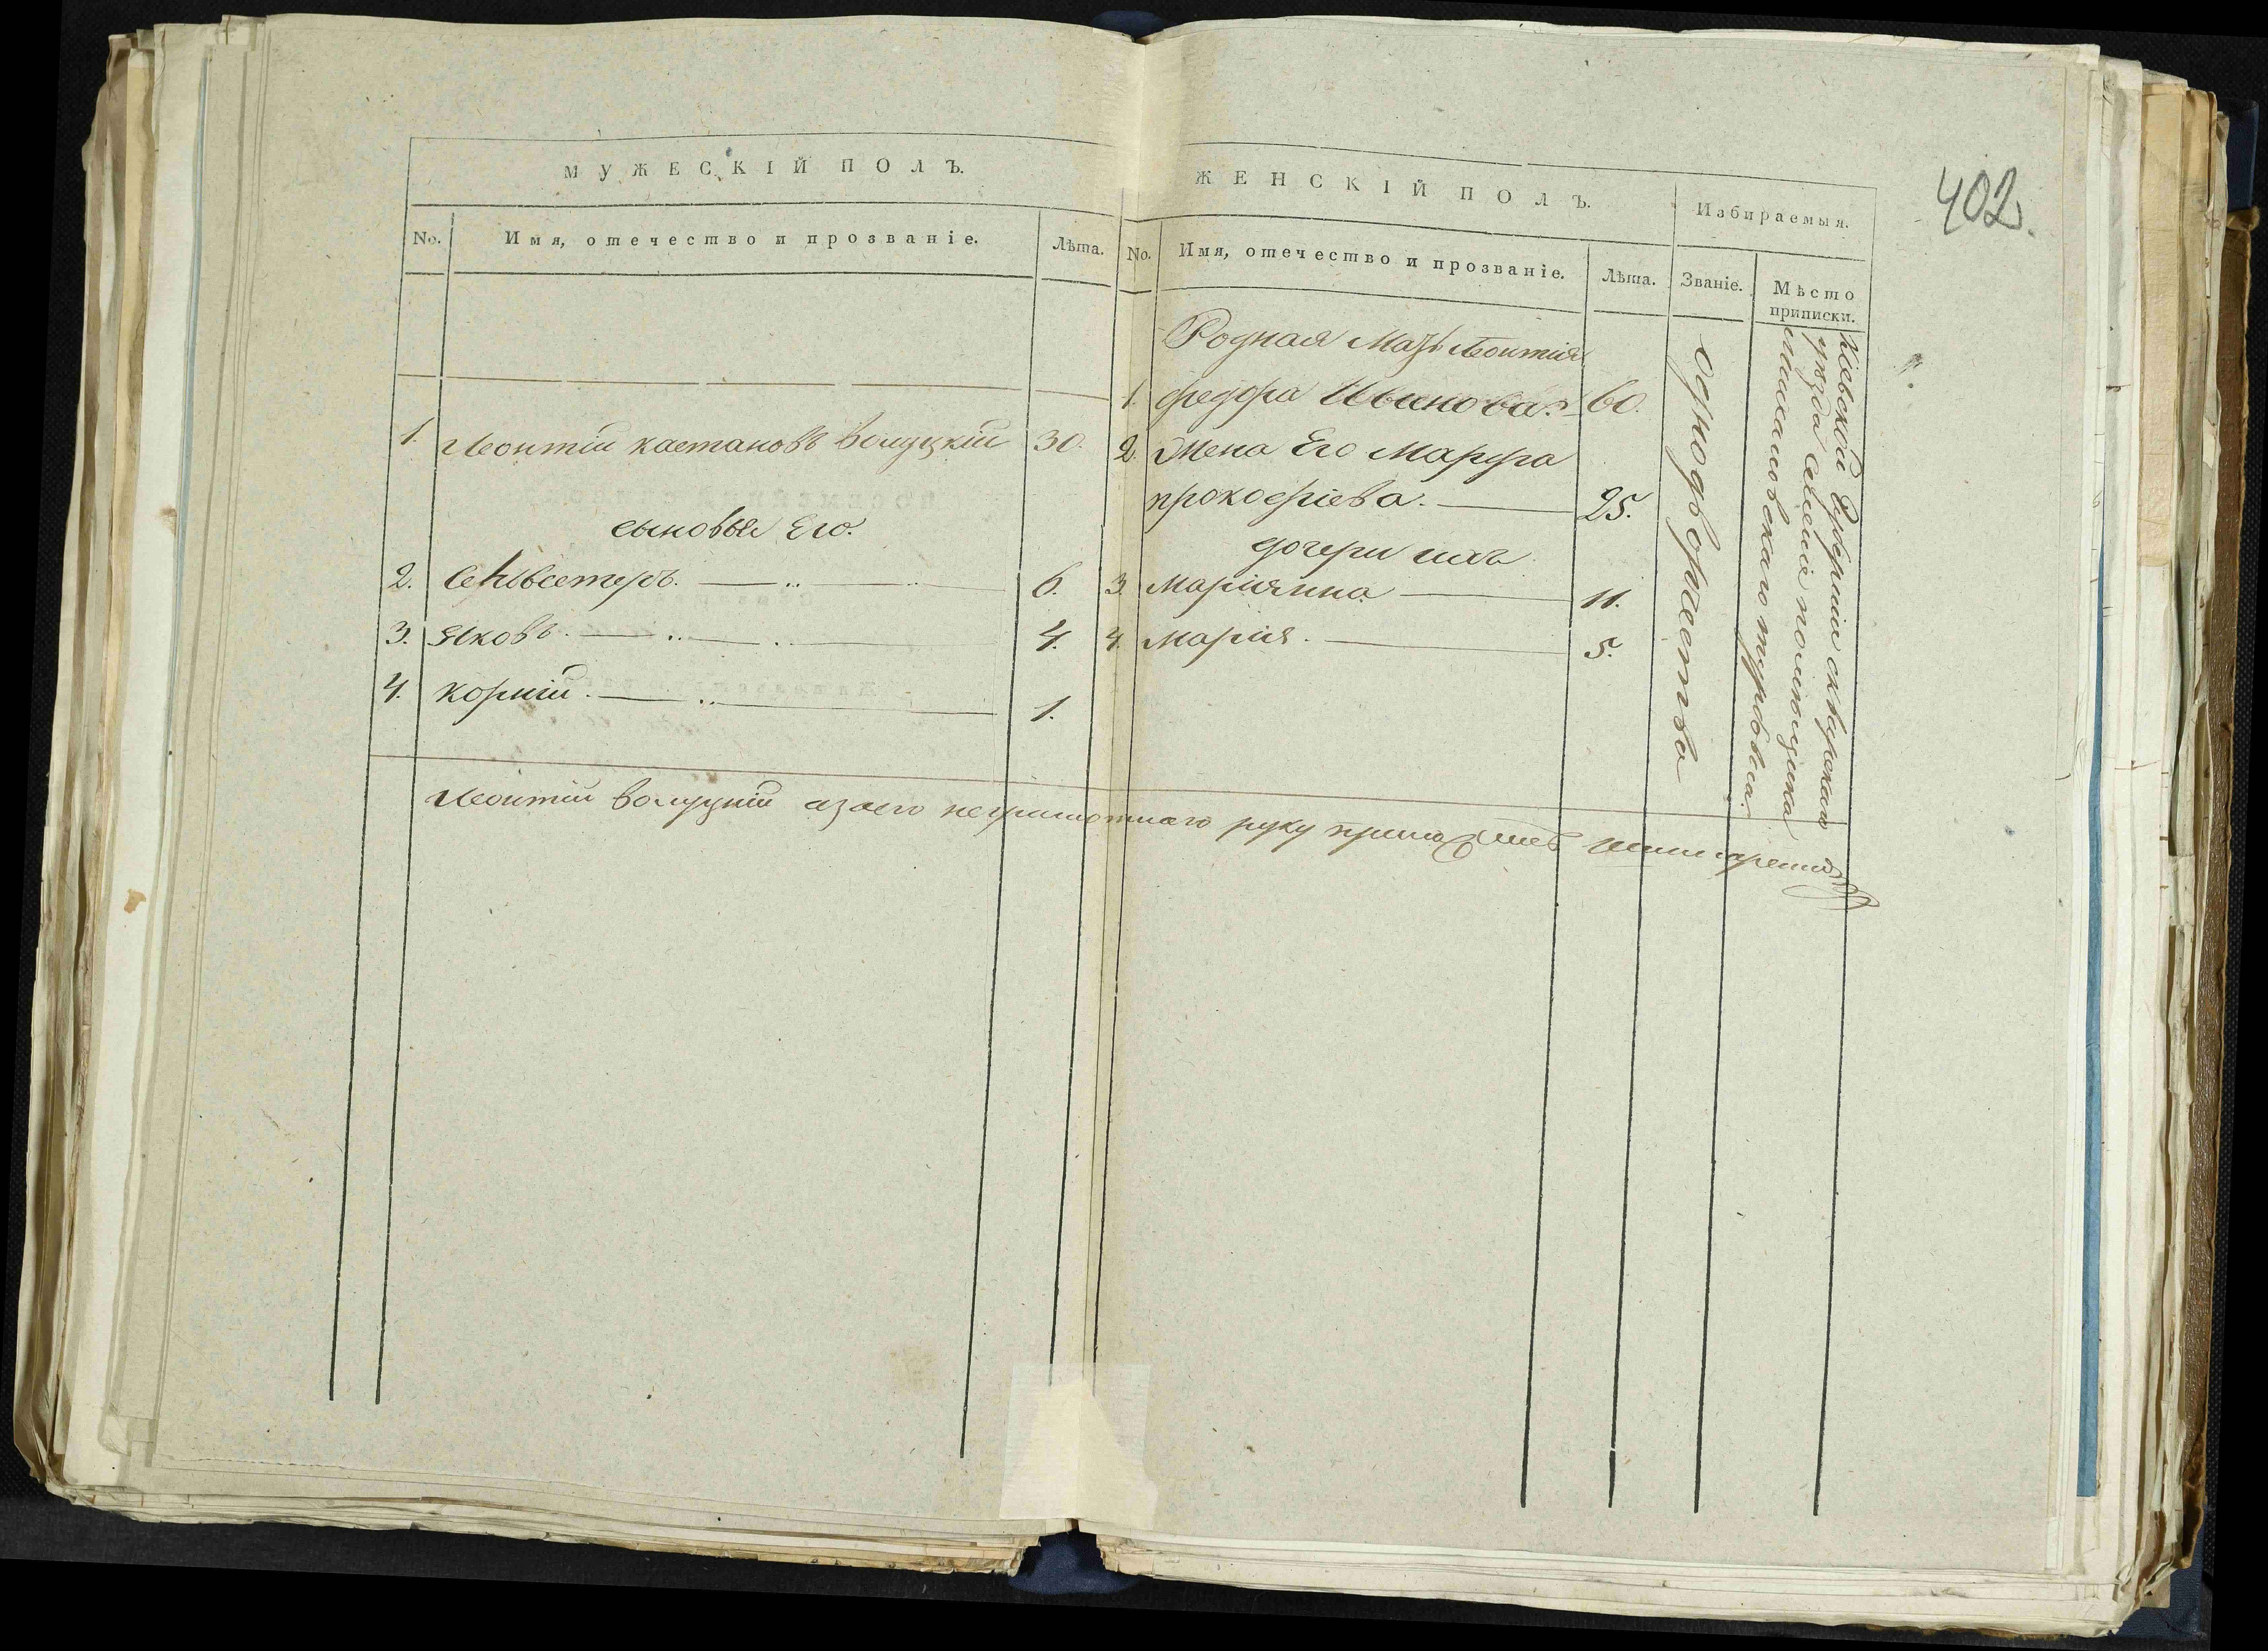 402.
МУЖЕСКІЙ ПОЛЪ.
No. Имя, отечество и прозваніе. Лѣта.
1. Леонтій каетановъ волуцкій 30.
сыновья Его.
2. Селивестеръ. 6.
3. Яковъ. 4.
4. корній. 1.
ЖЕНСКІЙ ПОЛЪ.
Избираемыя.
No. Имя, отечество и прозваніе. Лѣта. Званіе. Мѣсто
приписки.
Родная Мать Леонтія
1. федора Иванова. 60.
2. Жена Его Марфа
прокофіева. 25.
дочери ихъ
3. Маріянна 11.
4. Марія. 5.
однодворчества
Кіевской Губерніи сквирскаго
уѣзда селеніе помѣщика
Леонтій волуцкій азаего неграмотнаго руку приложилъ